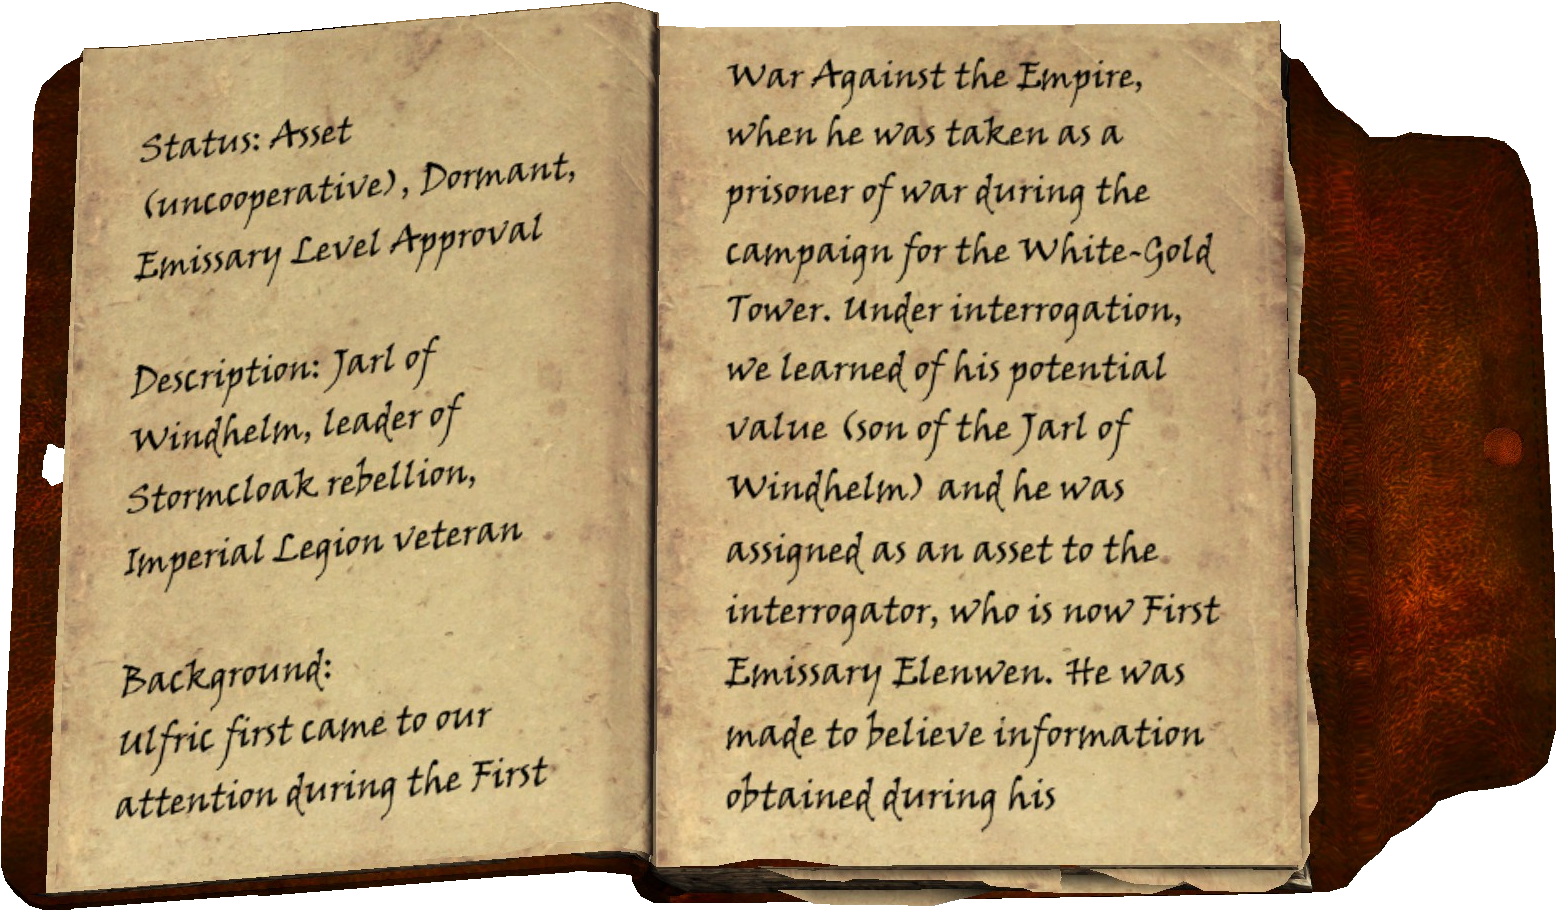 Status: Asset
(uncooperative), Dormant,
Emissary Level Approval
Description: Jarl of
Windhelm, leader of
Stormcloak rebellion,
Imperial Legion veteran
Background:
Ulfric first came to our
attention during the First
War Against the Empire,
when he was taken as a
prisoner of war during the
campaign for the White-Gold
Tower. Under interrogation,
we learned of his potential
value (son of the Jarl of
Windhelm) and he was
assigned as an asset to the
interrogator, who is now First
Emissary Elenwen. He was
made to believe information
obtained during his